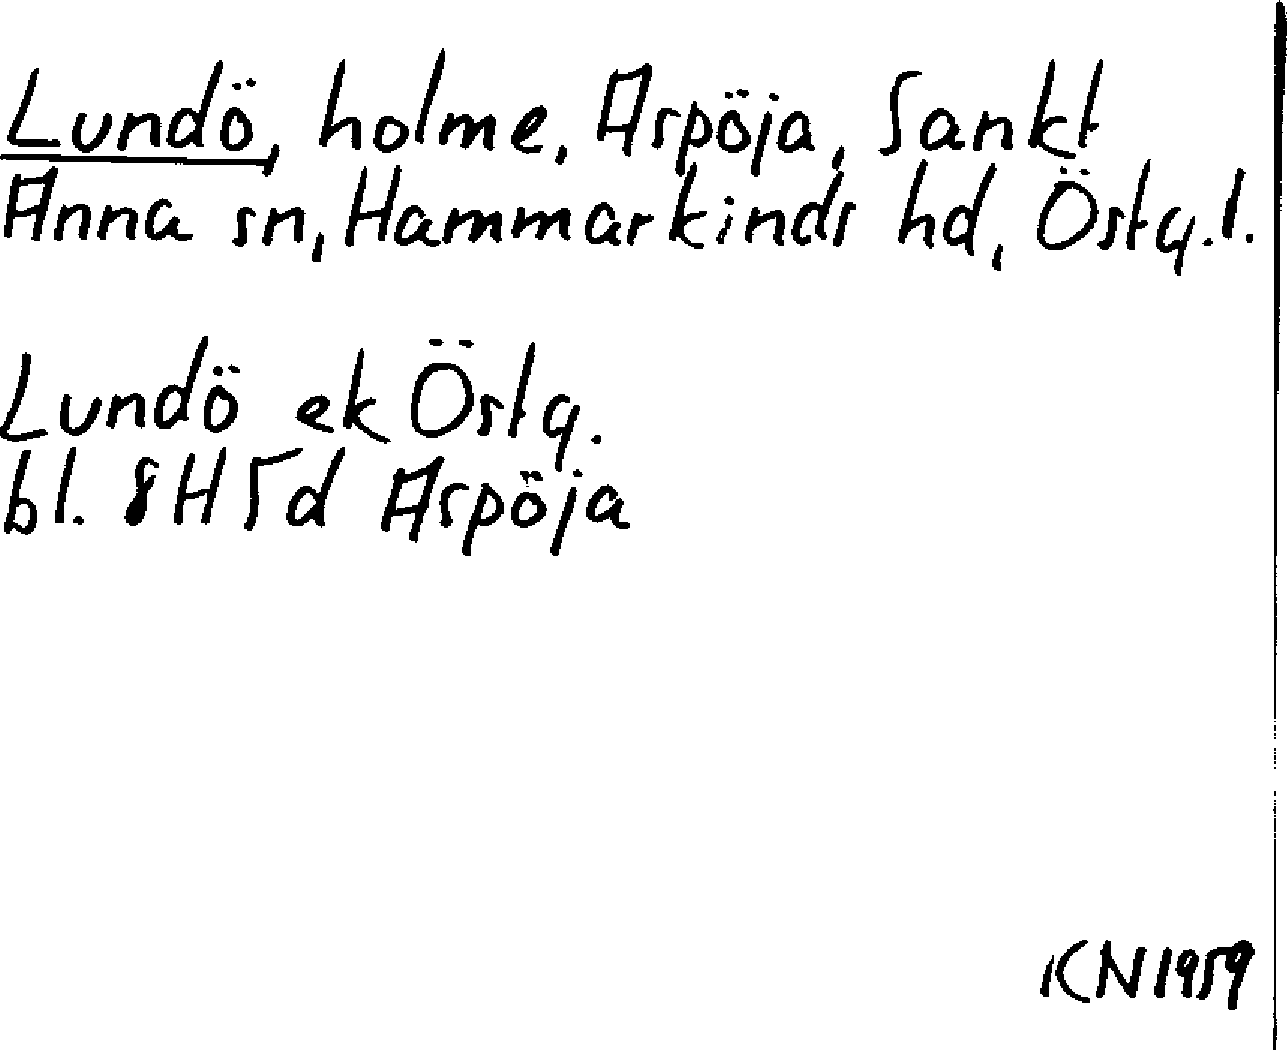 Lundö, holme, Aspöja, Sankt
Anna sn, Hammarkinds hd, Östg.l.
Lundö ek Östg.
bl. 8H5d Aspöja
KN1959